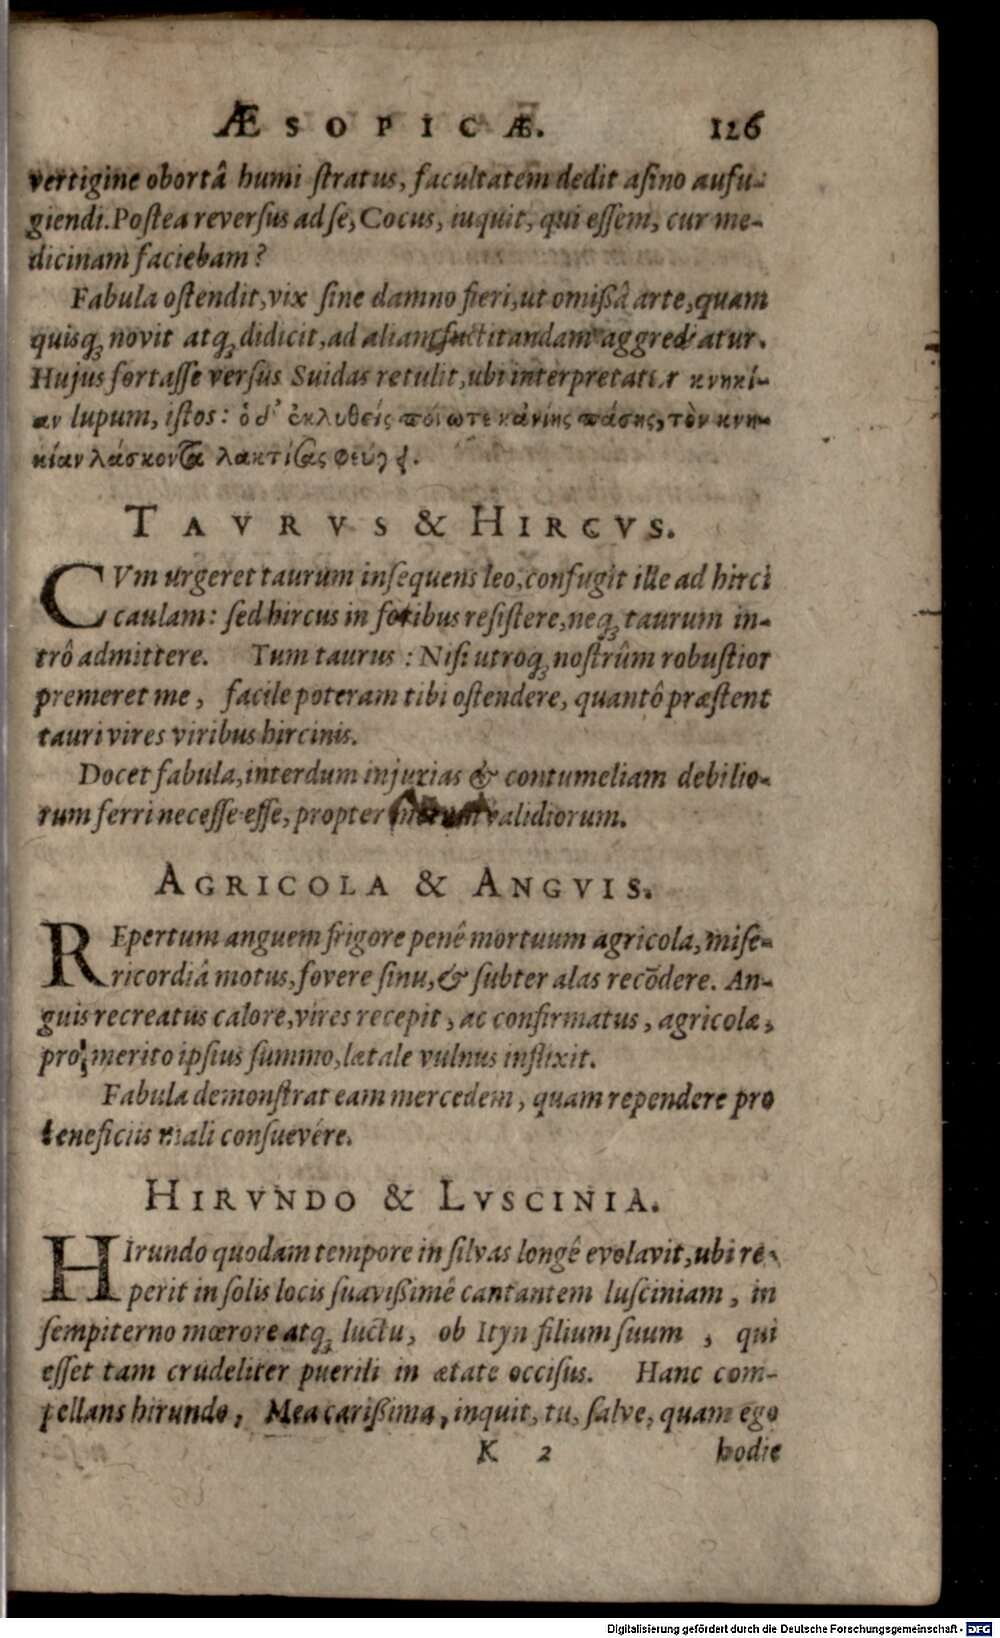 ÆSOPICÆ. 126
vertigine obortâ humi stratus, facultatem dedit asino aufu-
giendi. Postea reversus ad se, Cocus, iuquit, qui essem, cur me-
dicinam faciebam?
Fabula ostendit, vix sine damno fieri, ut omißâ arte, quam
quisq; novit atq; didicit, ad aliam factitandam aggrediatur.
Hujus fortasse versus Suidas retulit, ubi interpretatur κνηκί-
αν lupum, istos: ὁ δ' ἐκλυθεὶς πόνω τε κἀνίης πάσης, τὸν κνη-
κίαν λάσκοντα λακτίσας φεύγει.
TAVRVS & HIRCVS.
CVm urgeret taurum insequens leo, confugit ille ad hirci
caulam: sed hircus in foribus resistere, neq; taurum in-
trô admittere. Tum taurus: Nisi utroq; nostrûm robustior
premeret me, facile poteram tibi ostendere, quantô præstent
tauri vires viribus hircinis.
Docet fabula, interdum injurias & contumeliam debilio-
rum ferri necesse esse, propter validiorum.
AGRICOLA & ANGVIS.
REpertum anguem frigore penê mortuum agricola, mise-
ricordiâ motus, fovere sinu, & subter alas recōdere. An-
guis recreatus calore, vires recepit, ac confirmatus, agricolæ,
pro merito ipsius summo, lætale vulnus inflixit.
Fabula demonstrat eam mercedem, quam rependere pro
beneficiis mali consuevére.
HIRVNDO & LVSCINIA.
HIrundo quodam tempore in silvas longê evolavit, ubi re-
perit in solis locis suavißimê cantantem lusciniam, in
sempiterno mœrore atq; luctu, ob Ityn filium suum, qui
esset tam crudeliter puerili in ætate occisus. Hanc com-
pellans hirundo, Mea carißima, inquit, tu, salve, quam ego
K 2 hodie
Digitalisierung gefördert durch die Deutsche Forschungsgemeinschaft - DFG